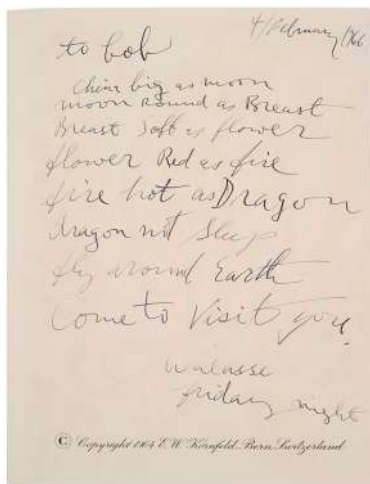 4/February/1966
to bob
China big as moon
moon Round as Breast
Breast Soft as flower
flower Red as fire
fire hot as Dragon
dragon not Sleep
fly around Earth
Come to Visit you.
walasse
friday night
© Copyright 1964 E.W. Kornfeld, Bern, Switzerland